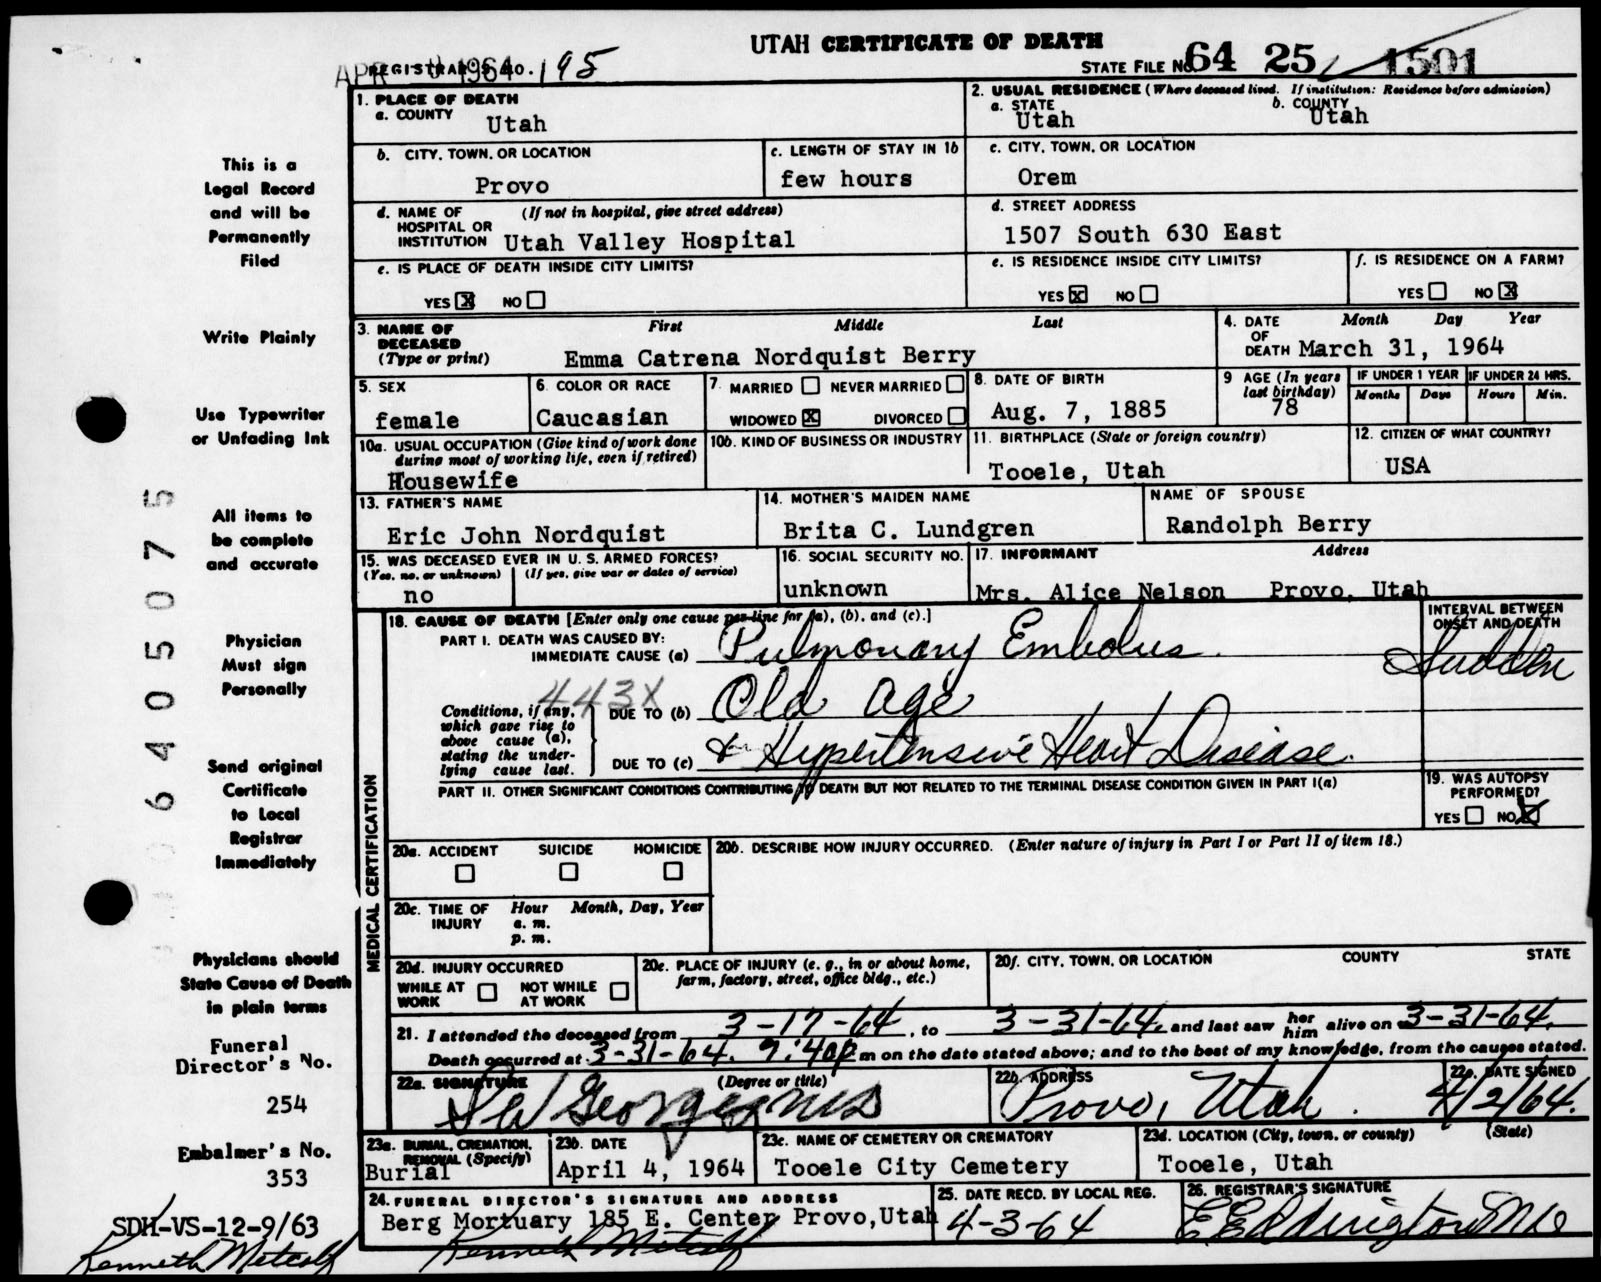 UTAH CERTIFICATE OF DEATH
APR 1964
REGISTRAR'S NO. 195
STATE FILE NO. 64 25 1501
1. PLACE OF DEATH
a. COUNTY
Utah
2. USUAL RESIDENCE (Where deceased lived. If institution: Residence before admission)
a. STATE
Utah
b. COUNTY
Utah
b. CITY, TOWN, OR LOCATION
Provo
c. LENGTH OF STAY IN 1b
few hours
c. CITY, TOWN, OR LOCATION
Orem
d. NAME OF HOSPITAL OR INSTITUTION
(If not in hospital, give street address)
Utah Valley Hospital
d. STREET ADDRESS
1507 South 630 East
e. IS PLACE OF DEATH INSIDE CITY LIMITS?
YES X NO
e. IS RESIDENCE INSIDE CITY LIMITS?
YES X NO
f. IS RESIDENCE ON A FARM?
YES NO X
3. NAME OF DECEASED (Type or print)
First Middle Last
Emma Catrena Nordquist Berry
4. DATE OF DEATH
Month Day Year
March 31, 1964
5. SEX
female
6. COLOR OR RACE
Caucasian
7. MARRIED NEVER MARRIED
WIDOWED X DIVORCED
8. DATE OF BIRTH
Aug. 7, 1885
9 AGE (In years last birthday)
78
IF UNDER 1 YEAR
Months Days
IF UNDER 24 HRS.
Hours Min.
10a. USUAL OCCUPATION (Give kind of work done during most of working life, even if retired)
Housewife
10b. KIND OF BUSINESS OR INDUSTRY
11. BIRTHPLACE (State or foreign country)
Tooele, Utah
12. CITIZEN OF WHAT COUNTRY?
USA
13. FATHER'S NAME
Eric John Nordquist
14. MOTHER'S MAIDEN NAME
Brita C. Lundgren
NAME OF SPOUSE
Randolph Berry
15. WAS DECEASED EVER IN U. S. ARMED FORCES?
(Yes, no, or unknown) (If yes, give war or dates of service)
no
16. SOCIAL SECURITY NO.
unknown
17. INFORMANT Address
Mrs. Alice Nelson Provo, Utah
MEDICAL CERTIFICATION
18. CAUSE OF DEATH [Enter only one cause per line for (a), (b), and (c).]
PART I. DEATH WAS CAUSED BY:
IMMEDIATE CAUSE (a) Pulmonary Embolus.
INTERVAL BETWEEN ONSET AND DEATH
Sudden
443X
Conditions, if any, which gave rise to above cause (a), stating the underlying cause last.
DUE TO (b) Old age
DUE TO (c) & Hypertensive Heart Disease.
PART II. OTHER SIGNIFICANT CONDITIONS CONTRIBUTING TO DEATH BUT NOT RELATED TO THE TERMINAL DISEASE CONDITION GIVEN IN PART I(a)
19. WAS AUTOPSY PERFORMED?
YES NO X
20a. ACCIDENT SUICIDE HOMICIDE
20b. DESCRIBE HOW INJURY OCCURRED. (Enter nature of injury in Part I or Part II of item 18.)
20c. TIME OF INJURY
Hour Month, Day, Year
a. m.
p. m.
20d. INJURY OCCURRED
WHILE AT WORK NOT WHILE AT WORK
20e. PLACE OF INJURY (e. g., in or about home, farm, factory, street, office bldg., etc.)
20f. CITY, TOWN, OR LOCATION COUNTY STATE
21. I attended the deceased from 3-17-64, to 3-31-64. and last saw her him alive on 3-31-64.
Death occurred at 3-31-64. 9:40p m on the date stated above; and to the best of my knowledge, from the causes stated.
22a. SIGNATURE (Degree or title)
22b. ADDRESS
Provo, Utah.
22c. DATE SIGNED
4/2/64.
23a. BURIAL, CREMATION, REMOVAL (Specify)
Burial
23b. DATE
April 4, 1964
23c. NAME OF CEMETERY OR CREMATORY
Tooele City Cemetery
23d. LOCATION (City, town, or county) (State)
Tooele, Utah
24. FUNERAL DIRECTOR'S SIGNATURE AND ADDRESS
Berg Mortuary 185 E. Center Provo, Utah
Kenneth Metcalf
25. DATE RECD. BY LOCAL REG.
4-3-64
26. REGISTRAR'S SIGNATURE
This is a
Legal Record
and will be
Permanently
Filed
Write Plainly
Use Typewriter
or Unfading Ink
All items to
be complete
and accurate
Physician
Must sign
Personally
Send original
Certificate
to Local
Registrar
Immediately
Physicians should
State Cause of Death
in plain terms
Funeral
Director's No.
254
Embalmer's No.
353
SDH-VS-12-9/63
Kenneth Metcalf
06405075